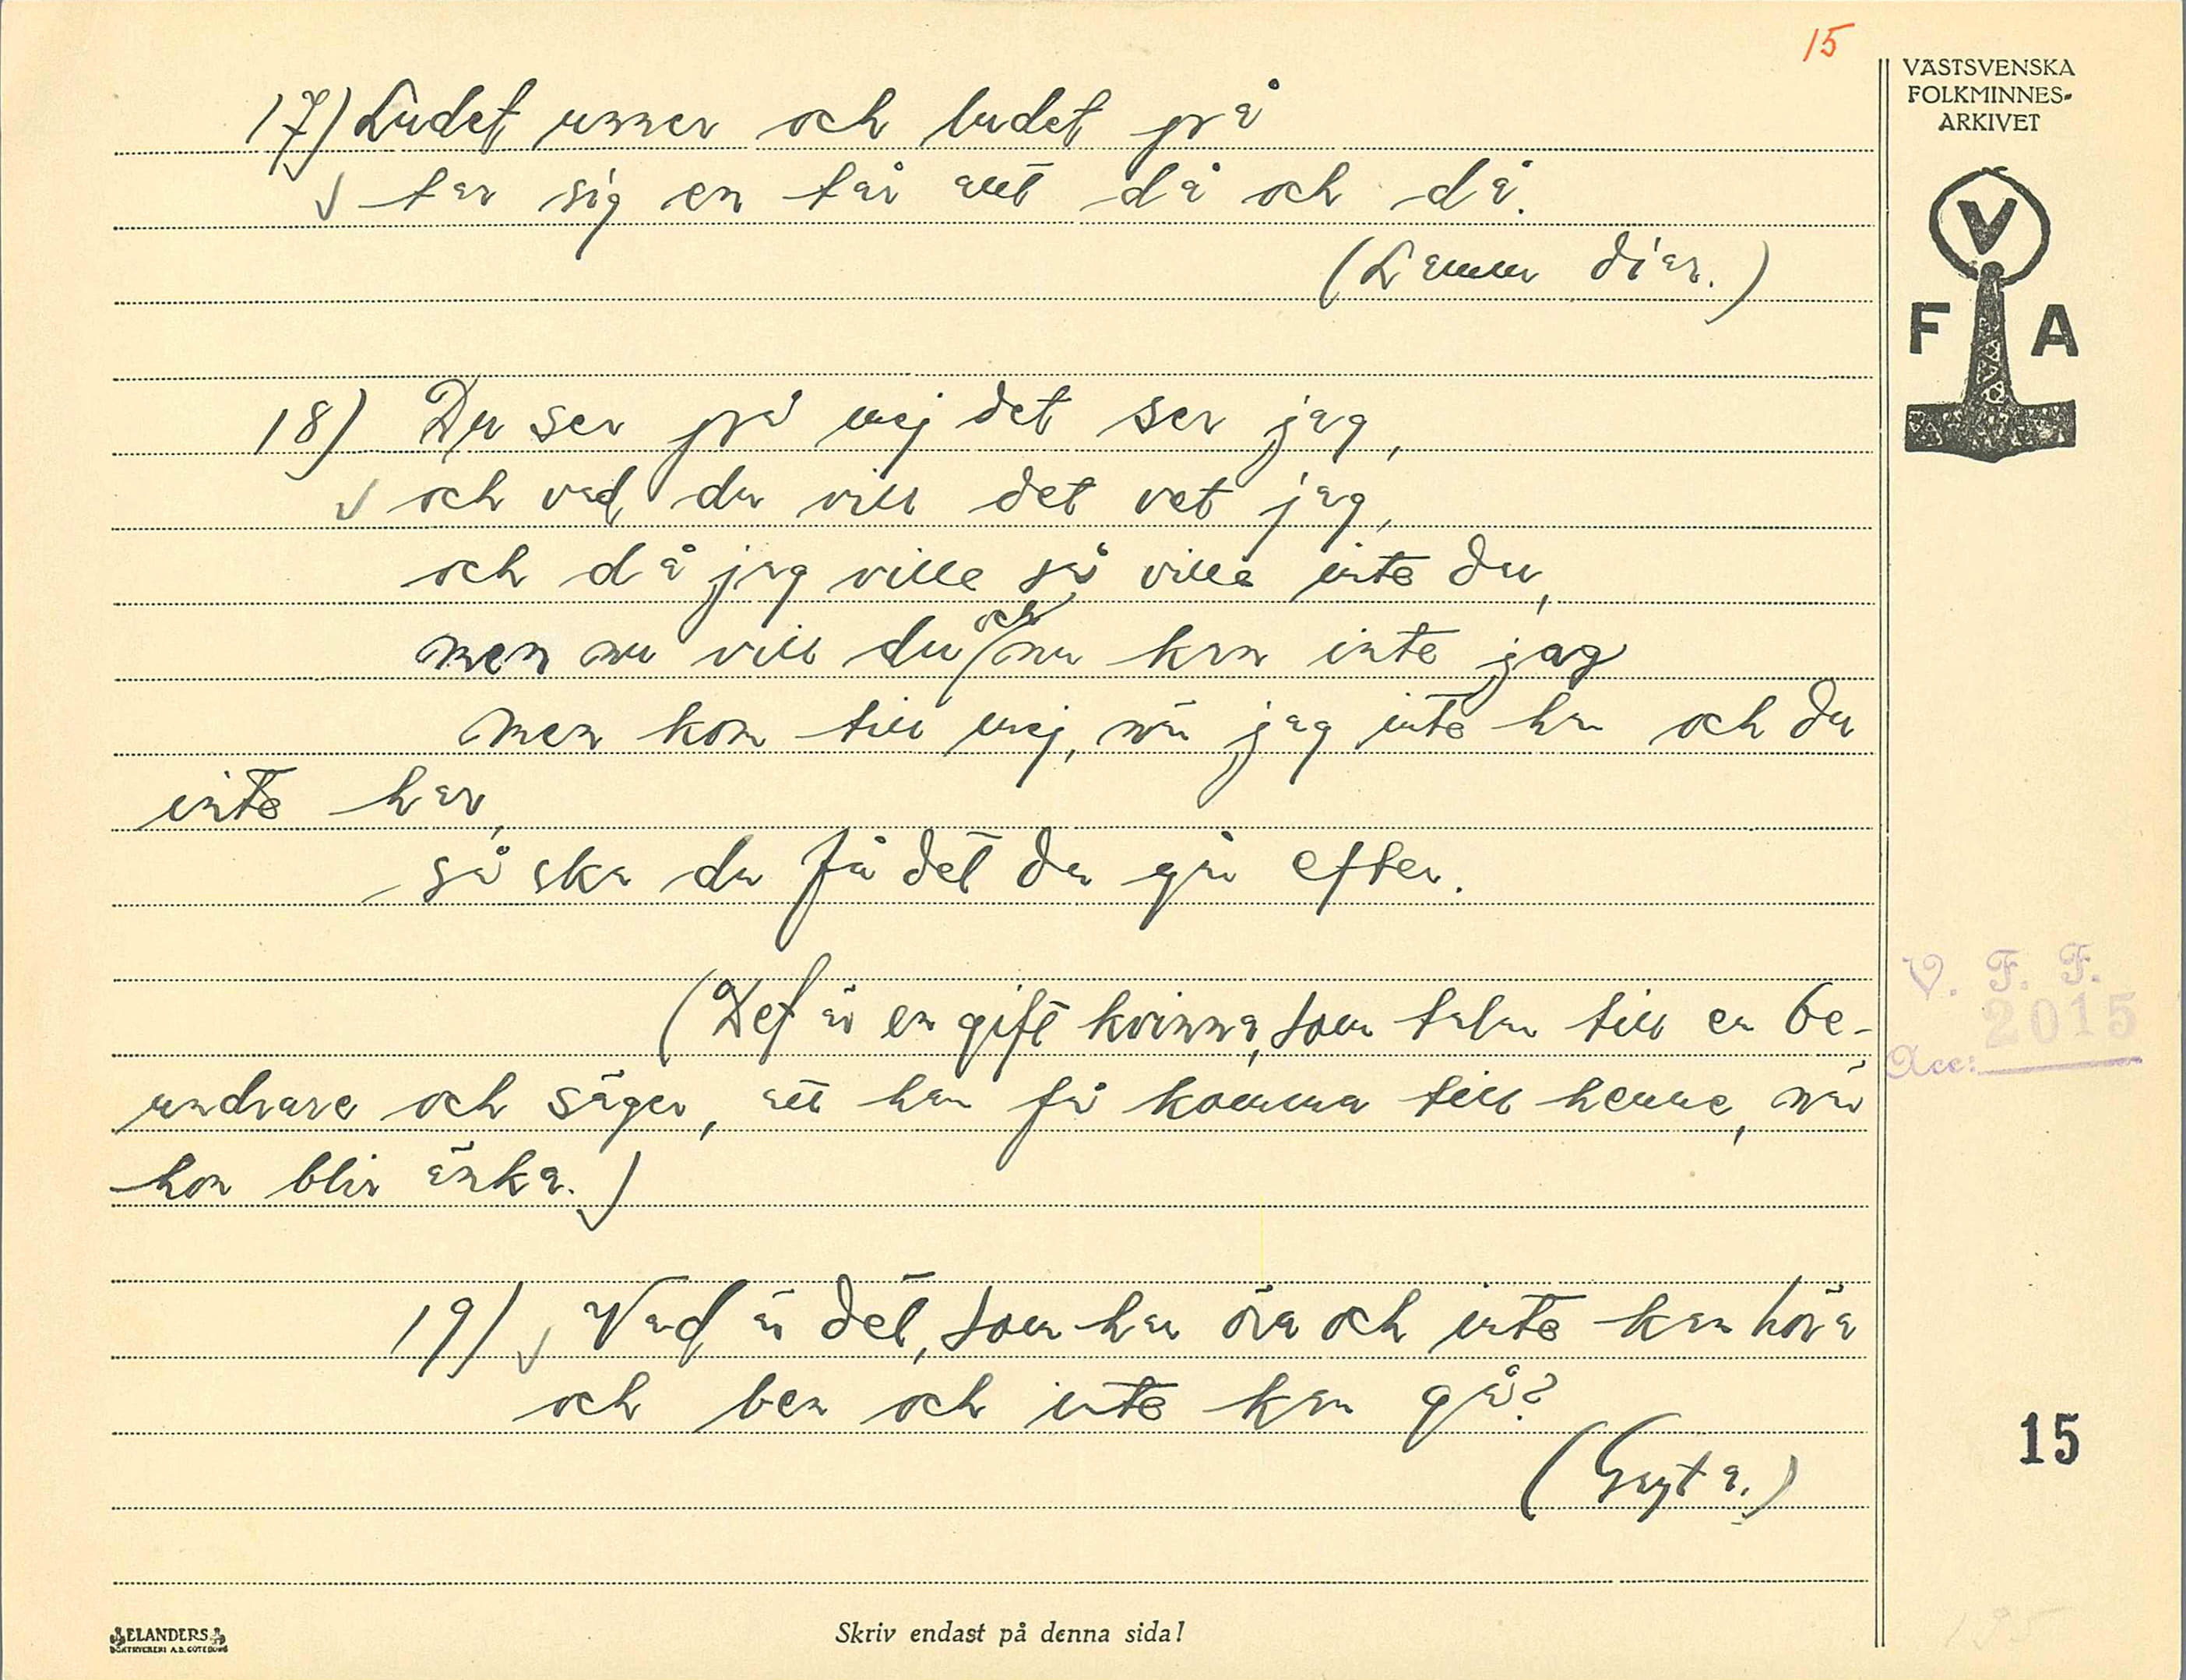 15
VÄSTSVENSKA
FOLKMINNES-
ARKIVET
V
F A
17) Ludet unner och ludet på
tar sig en tår allt då och då.
(Lamm diar.)
18) Du ser på mej det ser jag,
och vad du vill det vet jag,
och då jag ville så ville inte du,
men nu vill du och nu kan inte jag
men kom till mej, när jag inte har och du
inte har,
så ska du få det du går efter.
(Det är en gift kvinna, som talar till en be-
undrare och säger, att han får komma till henne, när
hon blir änka.)
V. F. F.
2015
Acc:
19) Vad är det, som har öra och inte kan höra
och ben och inte kan gå?
(Gryta.)
15
ELANDERS
BOKTRYCKERI A.B. GÖTEBORG
Skriv endast på denna sida!